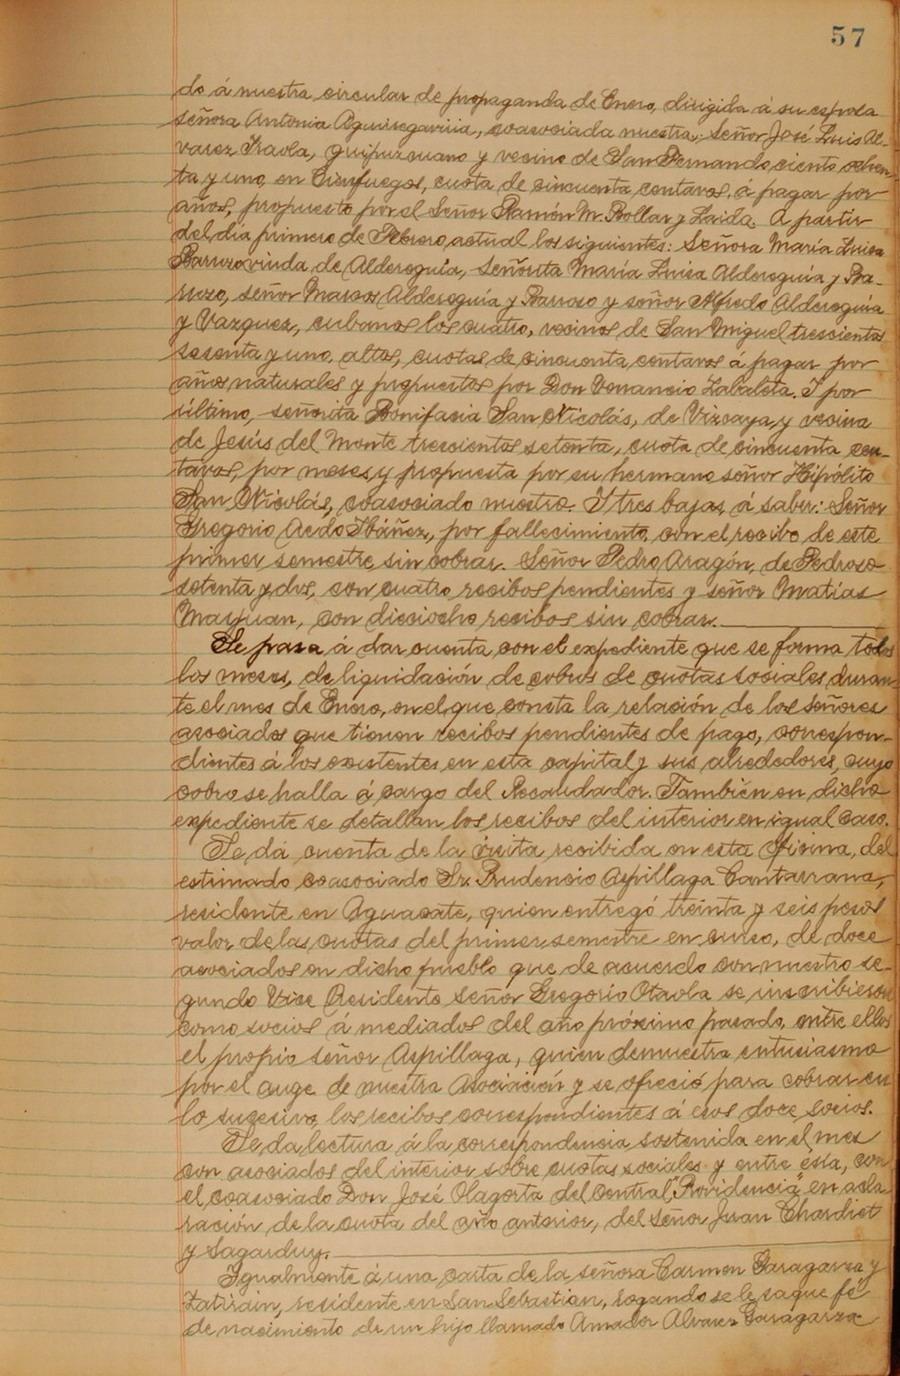 57
do á nuestra circular de propaganda de Enero, dirigida á su esposa
señora Antonia Aguiregaviria, coasociada nuestra; señor José Luis Al-
varez Iraola, guipuzcuano y vecino de San Fernando ciento ochen-
ta y uno, en Cienfuegos, cuota de cincuenta centavos, á pagar por
años, propuesto por el Señor Ramón M. Bollar y Laida. A partir
del día primero de Febrero, actual los siguientes: Señora María Luisa
Barrozo viuda de Aldereguía, Señorita María Luisa Aldereguía y Ba-
rrozo, señor Marcos Aldereguía y Barroso y señor Alfredo Aldereguía
y Vazquez, cubanos los cuatro, vecinos de San Miguel trescientos
sesenta y uno, altos, cuotas de cincuenta centavos á pagar por
años naturales y propuestos por Don Venancio Zabaleta. Y por
último, señorita Bonifacia San Nicolás, de Vizcaya, y vecina
de Jesús del Monte trescientos setenta, cuota de cincuenta cen-
tavos, por meses, y propuesta por su hermano señor Hipólito
San Nicolás, coasociado nuestro. Y tres bajas, á saber: Señor
Gregorio Acdo Ibáñez, por fallecimiento, con el recibo de este
primer semestre, sin cobrar. Señor Pedro Aragón, de Pedroso
setenta y dos, con cuatro recibos pendientes y señor Matías
Mayuan, con dieciocho recibos sin cobrar.
Se pasa á dar cuenta con el expediente que se forma todos
los meses, de liquidación de cobros de cuotas sociales duran-
te el mes de Enero, en el que consta la relación de los señores
asociados que tienen recibos pendientes de pago, correspon-
dientes á los existentes en esta capital y sus alrededores, cuyo
cobro se halla á cargo del Recaudador. También en dicho
expediente se detallan los recibos del interior en igual caso.
Se dá cuenta de la visita recibida en esta Oficina, del
estimado coasociado Sr. Prudencio Aspillaga Cantarrana,
residente en Aguacate, quien entregó treinta y seis pesos
valor de las cuotas del primer semestre en curso, de doce
asociados en dicho pueblo que de acuerdo con nuestro se-
gundo Vice Presidente señor Gregorio Otaola se inscribieron
como socios á mediados del año próximo pasado, entre ellos
el propio señor Aspillaga, quien demuestra entusiasmo
por el auge de nuestra Asociación y se ofreció para cobrar en
lo sucesivo, los recibos correspondientes á esos doce socios.
Se da lectura á la correspondencia sostenida en el mes
con asociados del interior sobre cuotas sociales y entre ésta, con
el coasociado Don José Olagorta del central "Providencia" en acla
ración de la cuota del año anterior, del señor Juan Chardiet
y Sagarduy.
Igualmente á una carta de la señora Carmen Garagarza y
Zatirain, residente en San Sebastian, rogando se le saque fé
de nacimiento de un hijo llamado Amador Alvarez Garagarza